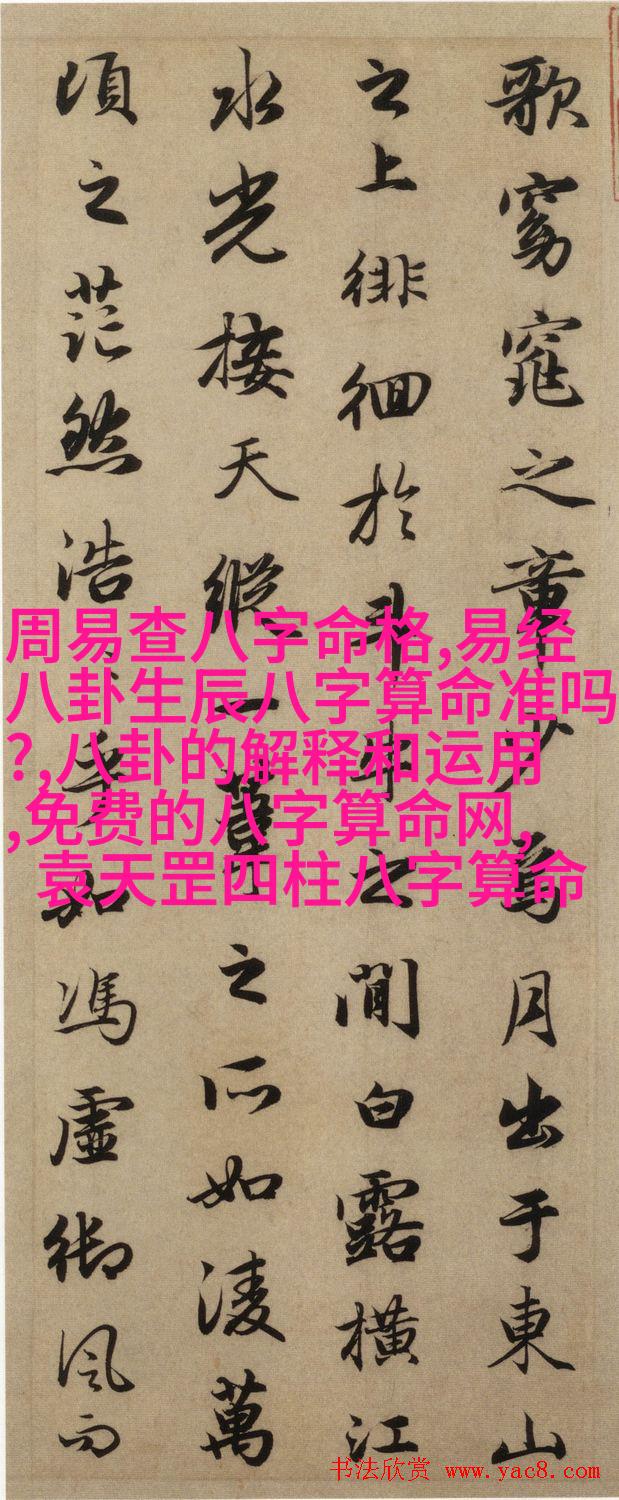 歌窈窕之章少焉月出于東山
之上徘徊於斗牛之間白露橫江
水光接天縱一葦之所如淩萬
頃之茫然浩〻乎如馮虛御風而
周易查八字命格,易经
八卦生辰八字算命准吗
?,八卦的解释和运用
,免费的八字算命网,
袁天罡四柱八字算命
书法欣赏 www.yac8.com